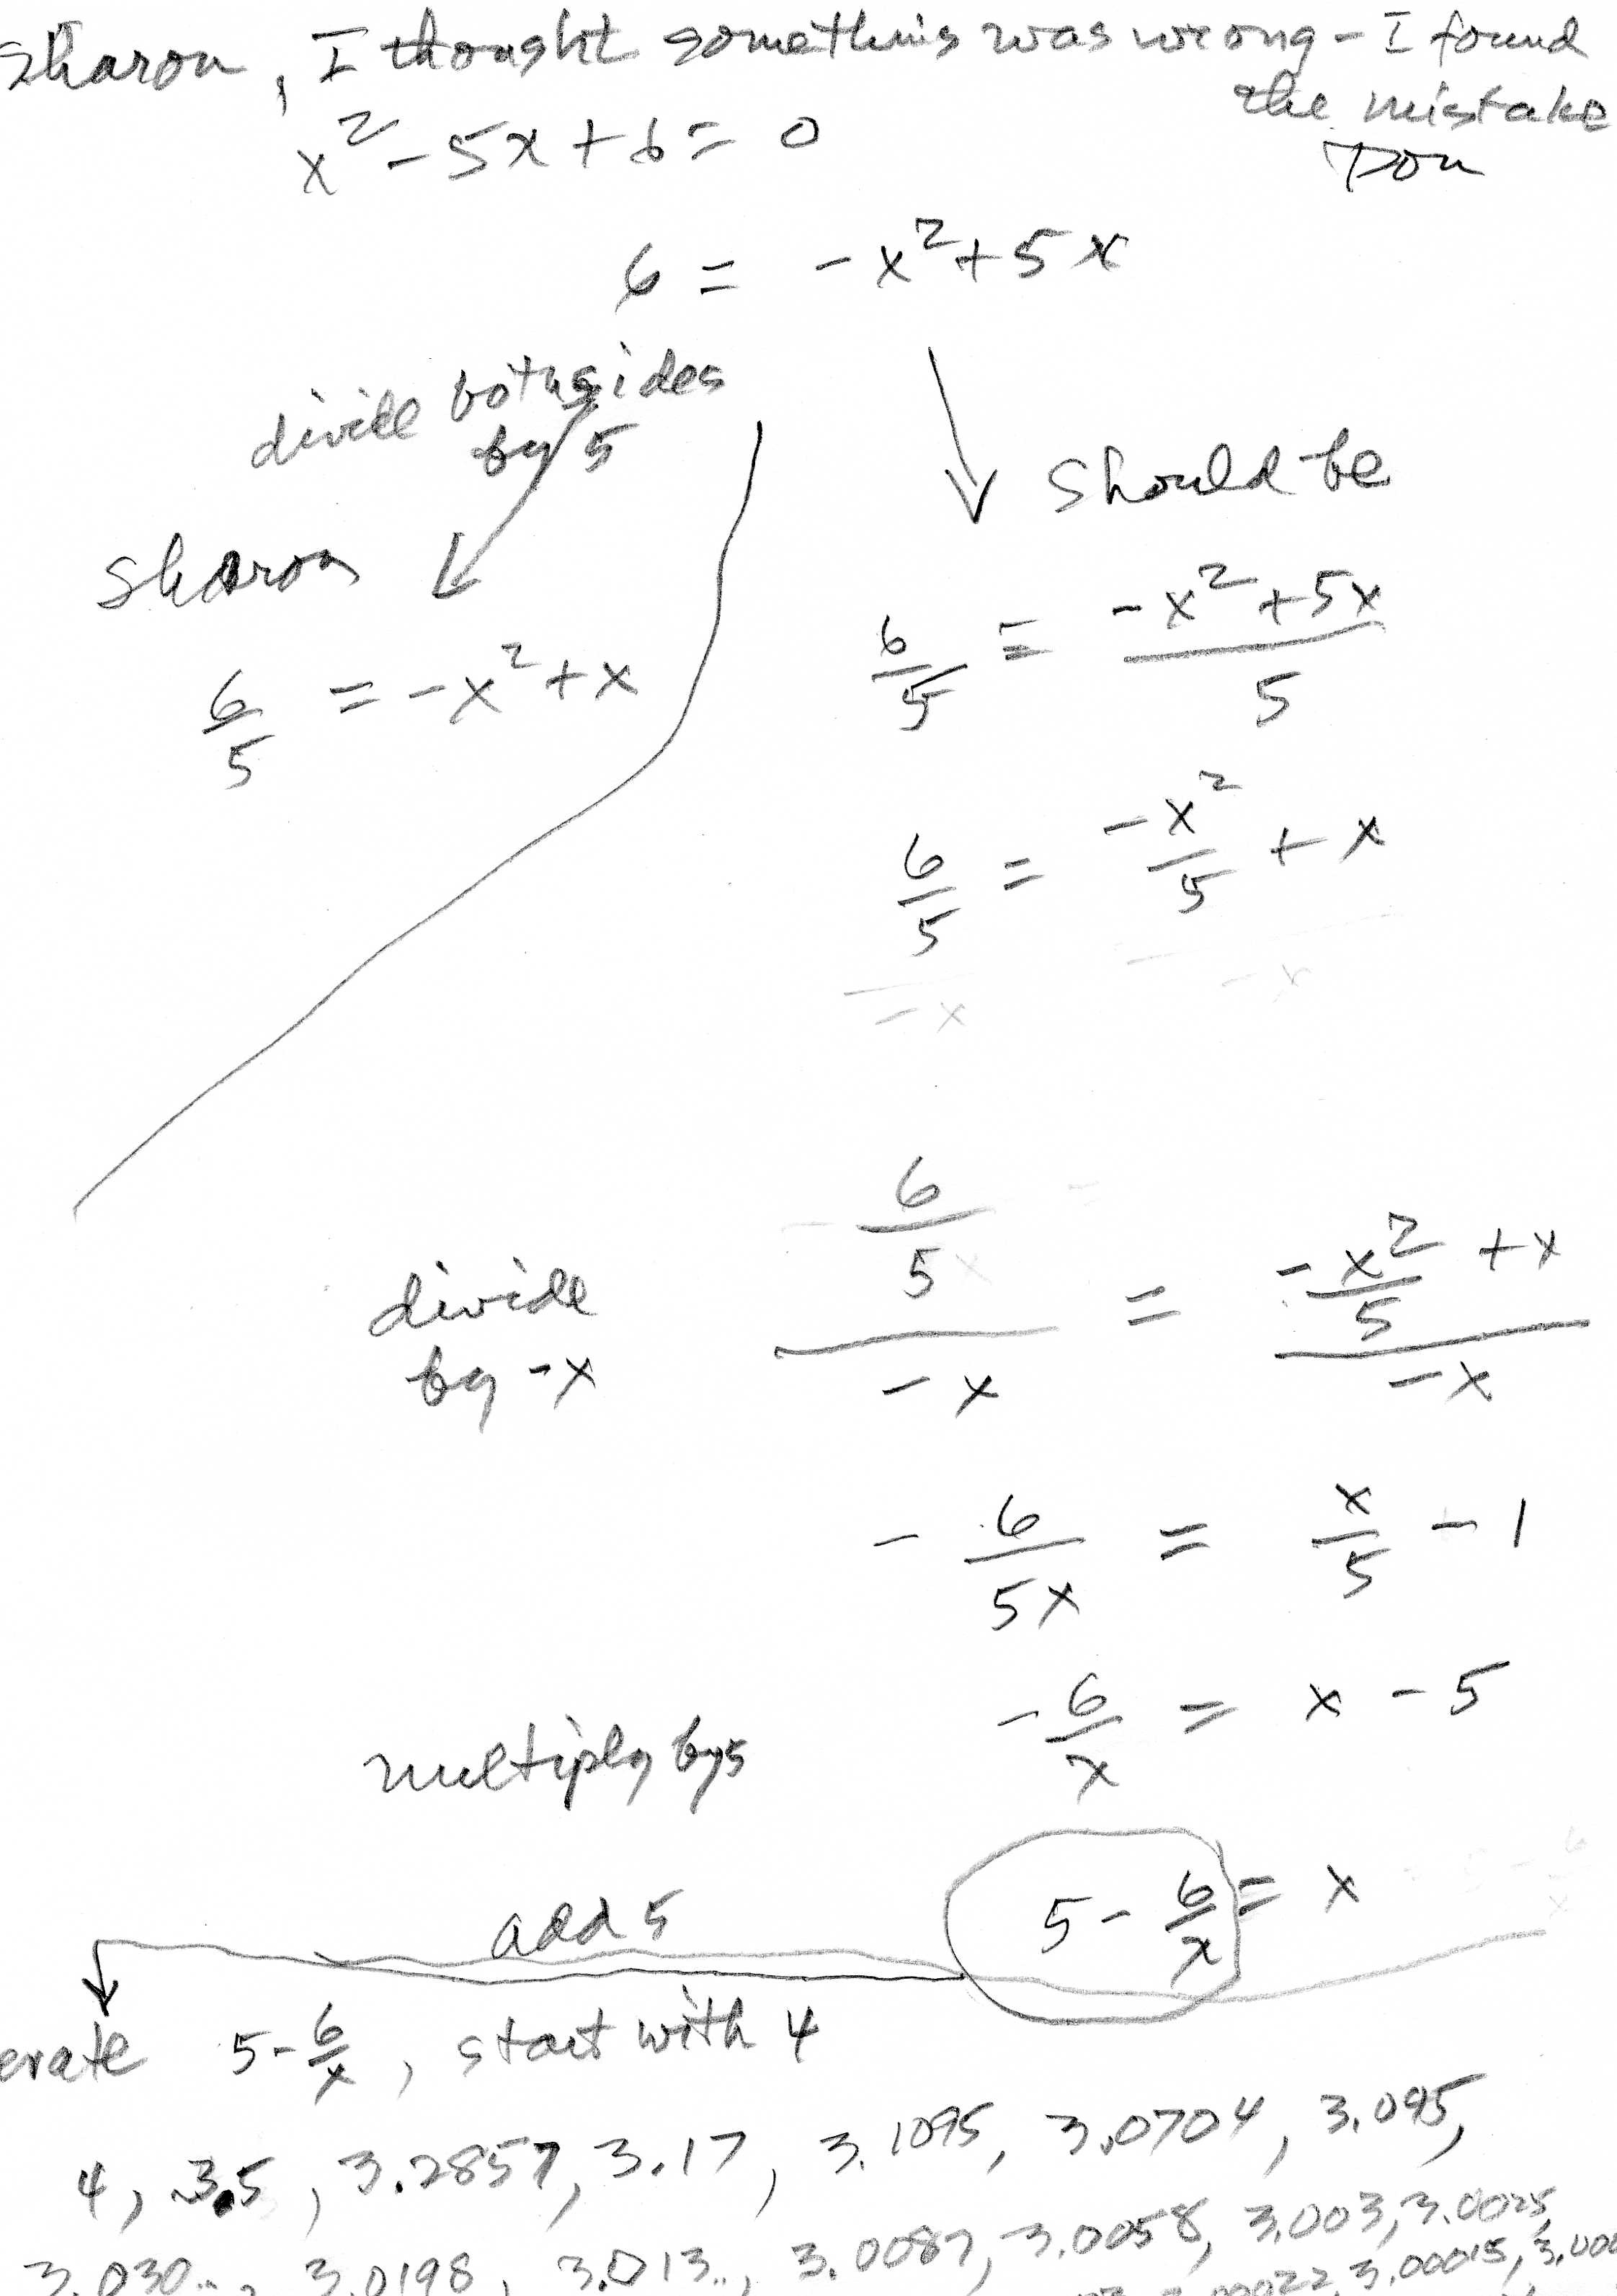 Sharon, I thought something was wrong - I found
the mistake
Don
x² - 5x + 6 = 0
6 = -x² + 5x
divide both sides
by 5
should be
Sharon
6/5 = -x² + x
6/5 = (-x² + 5x)/5
6/5 = -x²/5 + x
-x -x
divide
by -x
(6/5)/(-x) = (-x²/5 + x)/(-x)
-6/(5x) = x/5 - 1
multiply by 5
-6/x = x - 5
add 5
5 - 6/x = x
erate 5 - 6/x, start with 4
4, 3.5, 3.2857, 3.17, 3.1095, 3.0704, 3.095,
3.030.., 3.0198, 3.013.., 3.0087, 3.0058, 3.003, 3.0025,
3.00015, 3.000